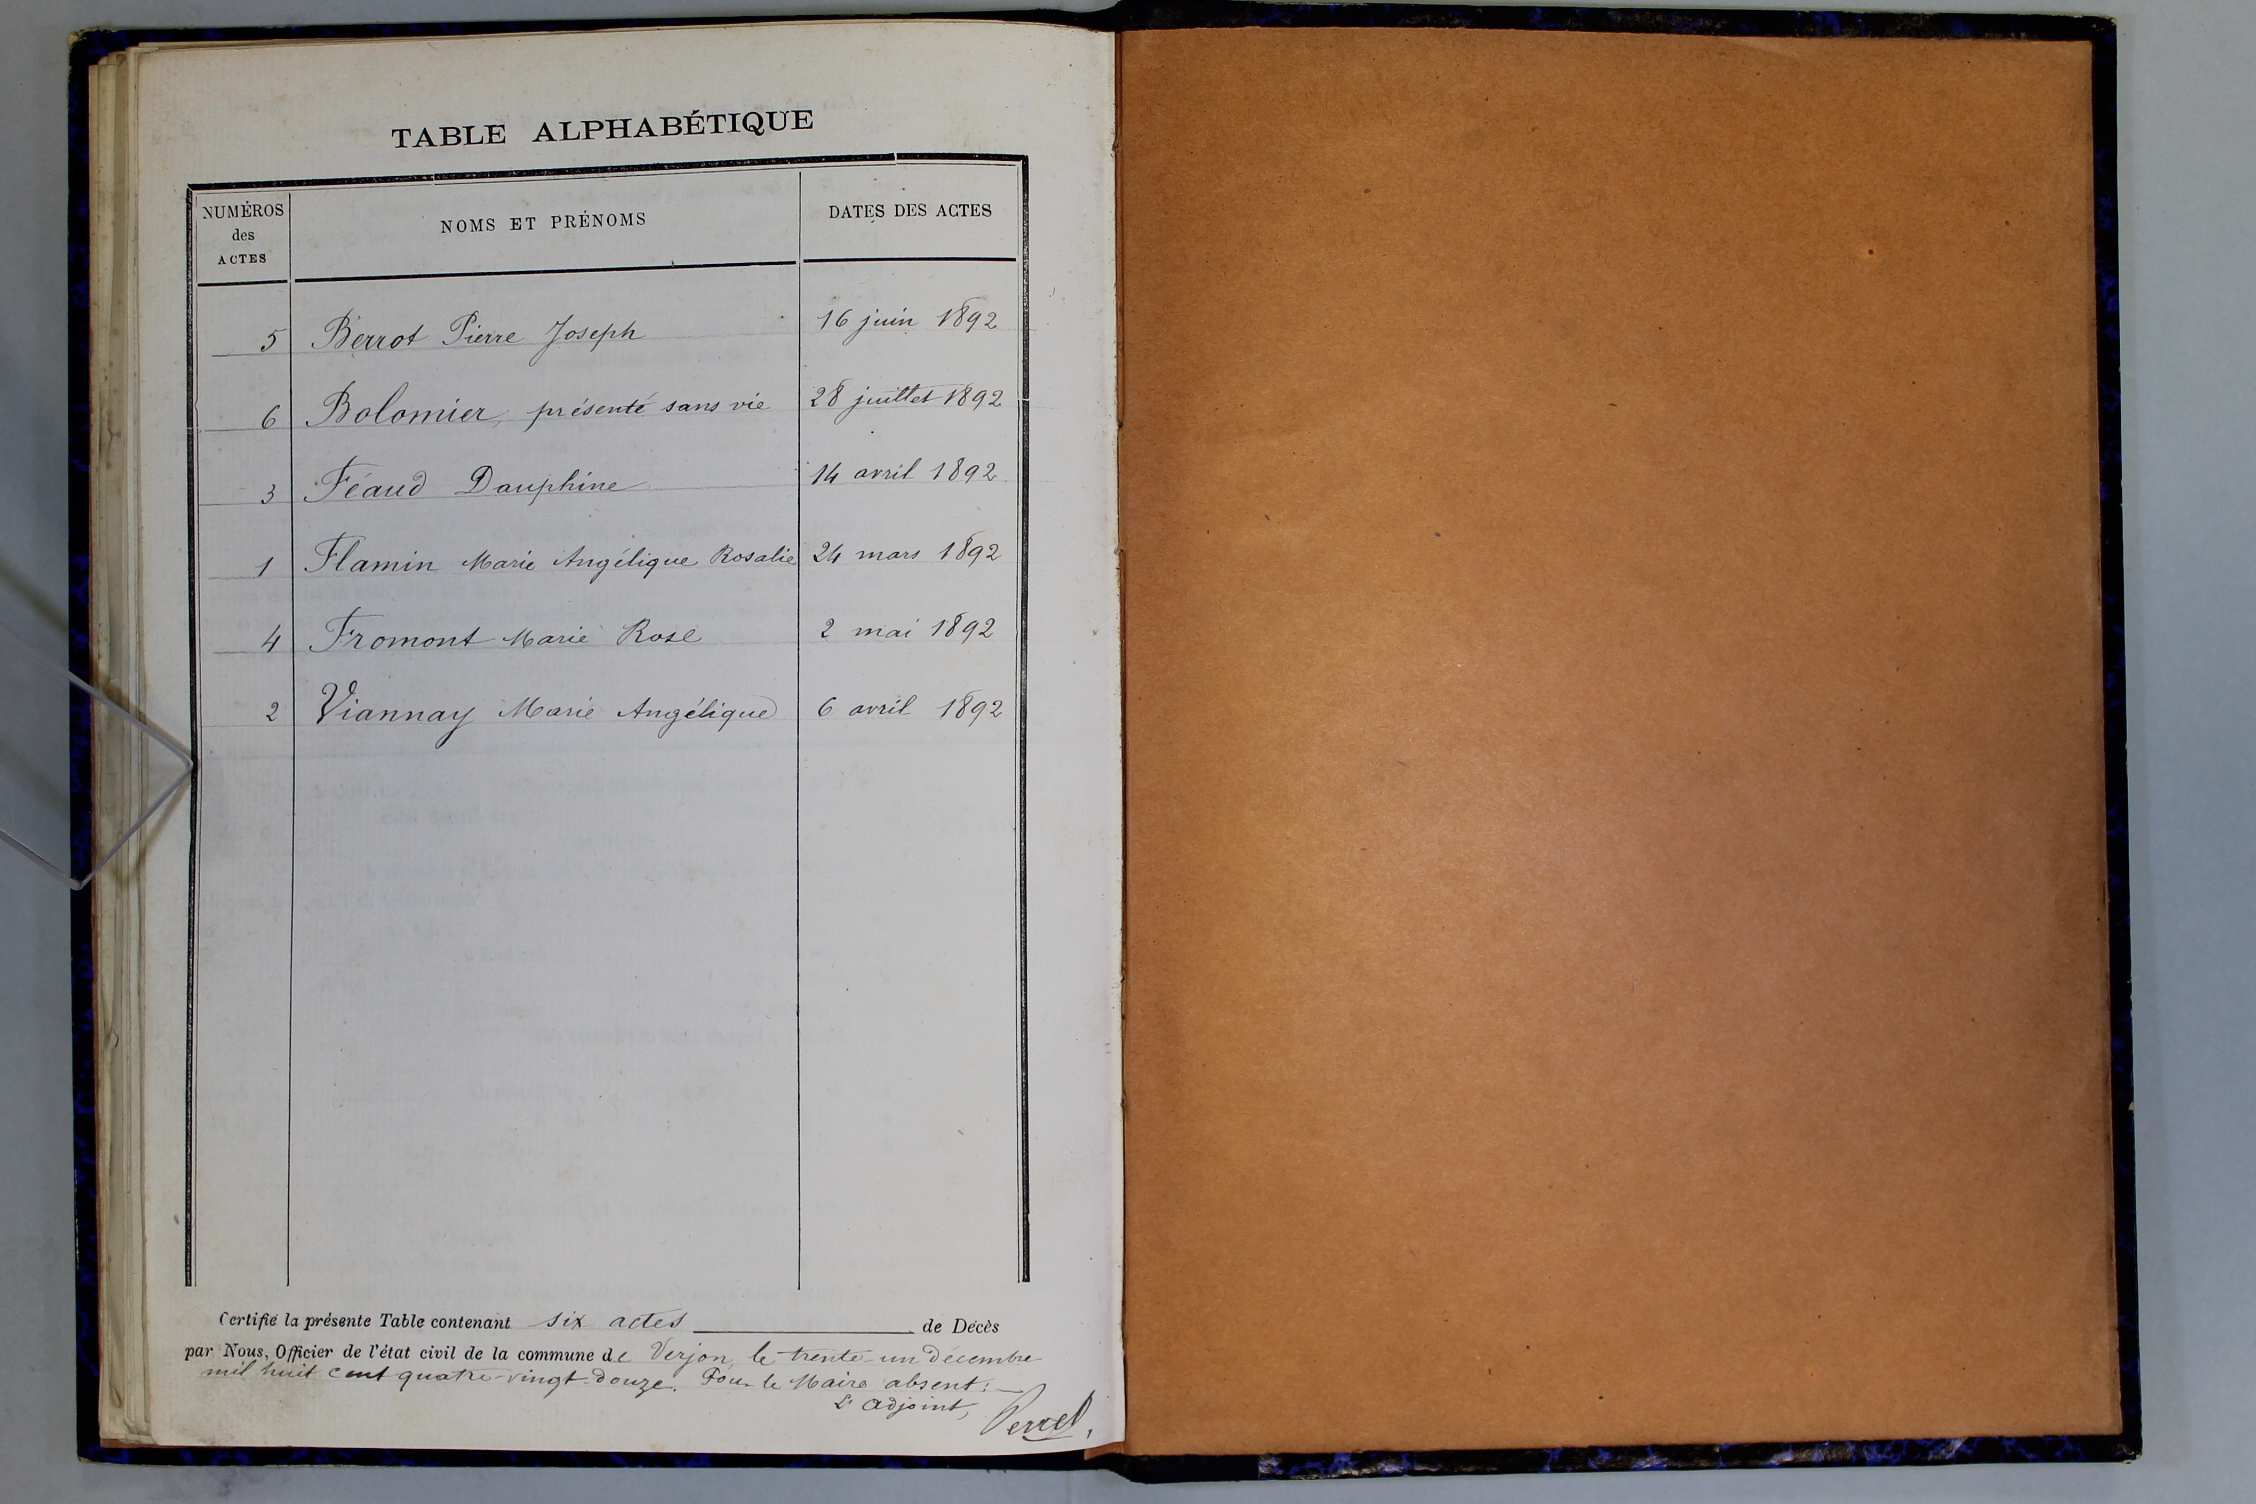 TABLE ALPHABÉTIQUE
NUMÉROS des ACTES | NOMS ET PRÉNOMS | DATES DES ACTES
5 Berrot Pierre Joseph 16 juin 1892
6 Bolomier, présenté sans vie 28 juillet 1892
3 Féaud Dauphine 14 avril 1892
1 Flamin Marie Angélique Rosalie 24 mars 1892
4 Fromont Marie Rose 2 mai 1892
2 Viannay Marie Angélique 6 avril 1892
Certifié la présente Table contenant six actes de Décès
par Nous, Officier de l'état civil de la commune de Verjon, le trente-un décembre
mil huit cent quatre-vingt-douze. Pour le Maire absent:
L'adjoint,